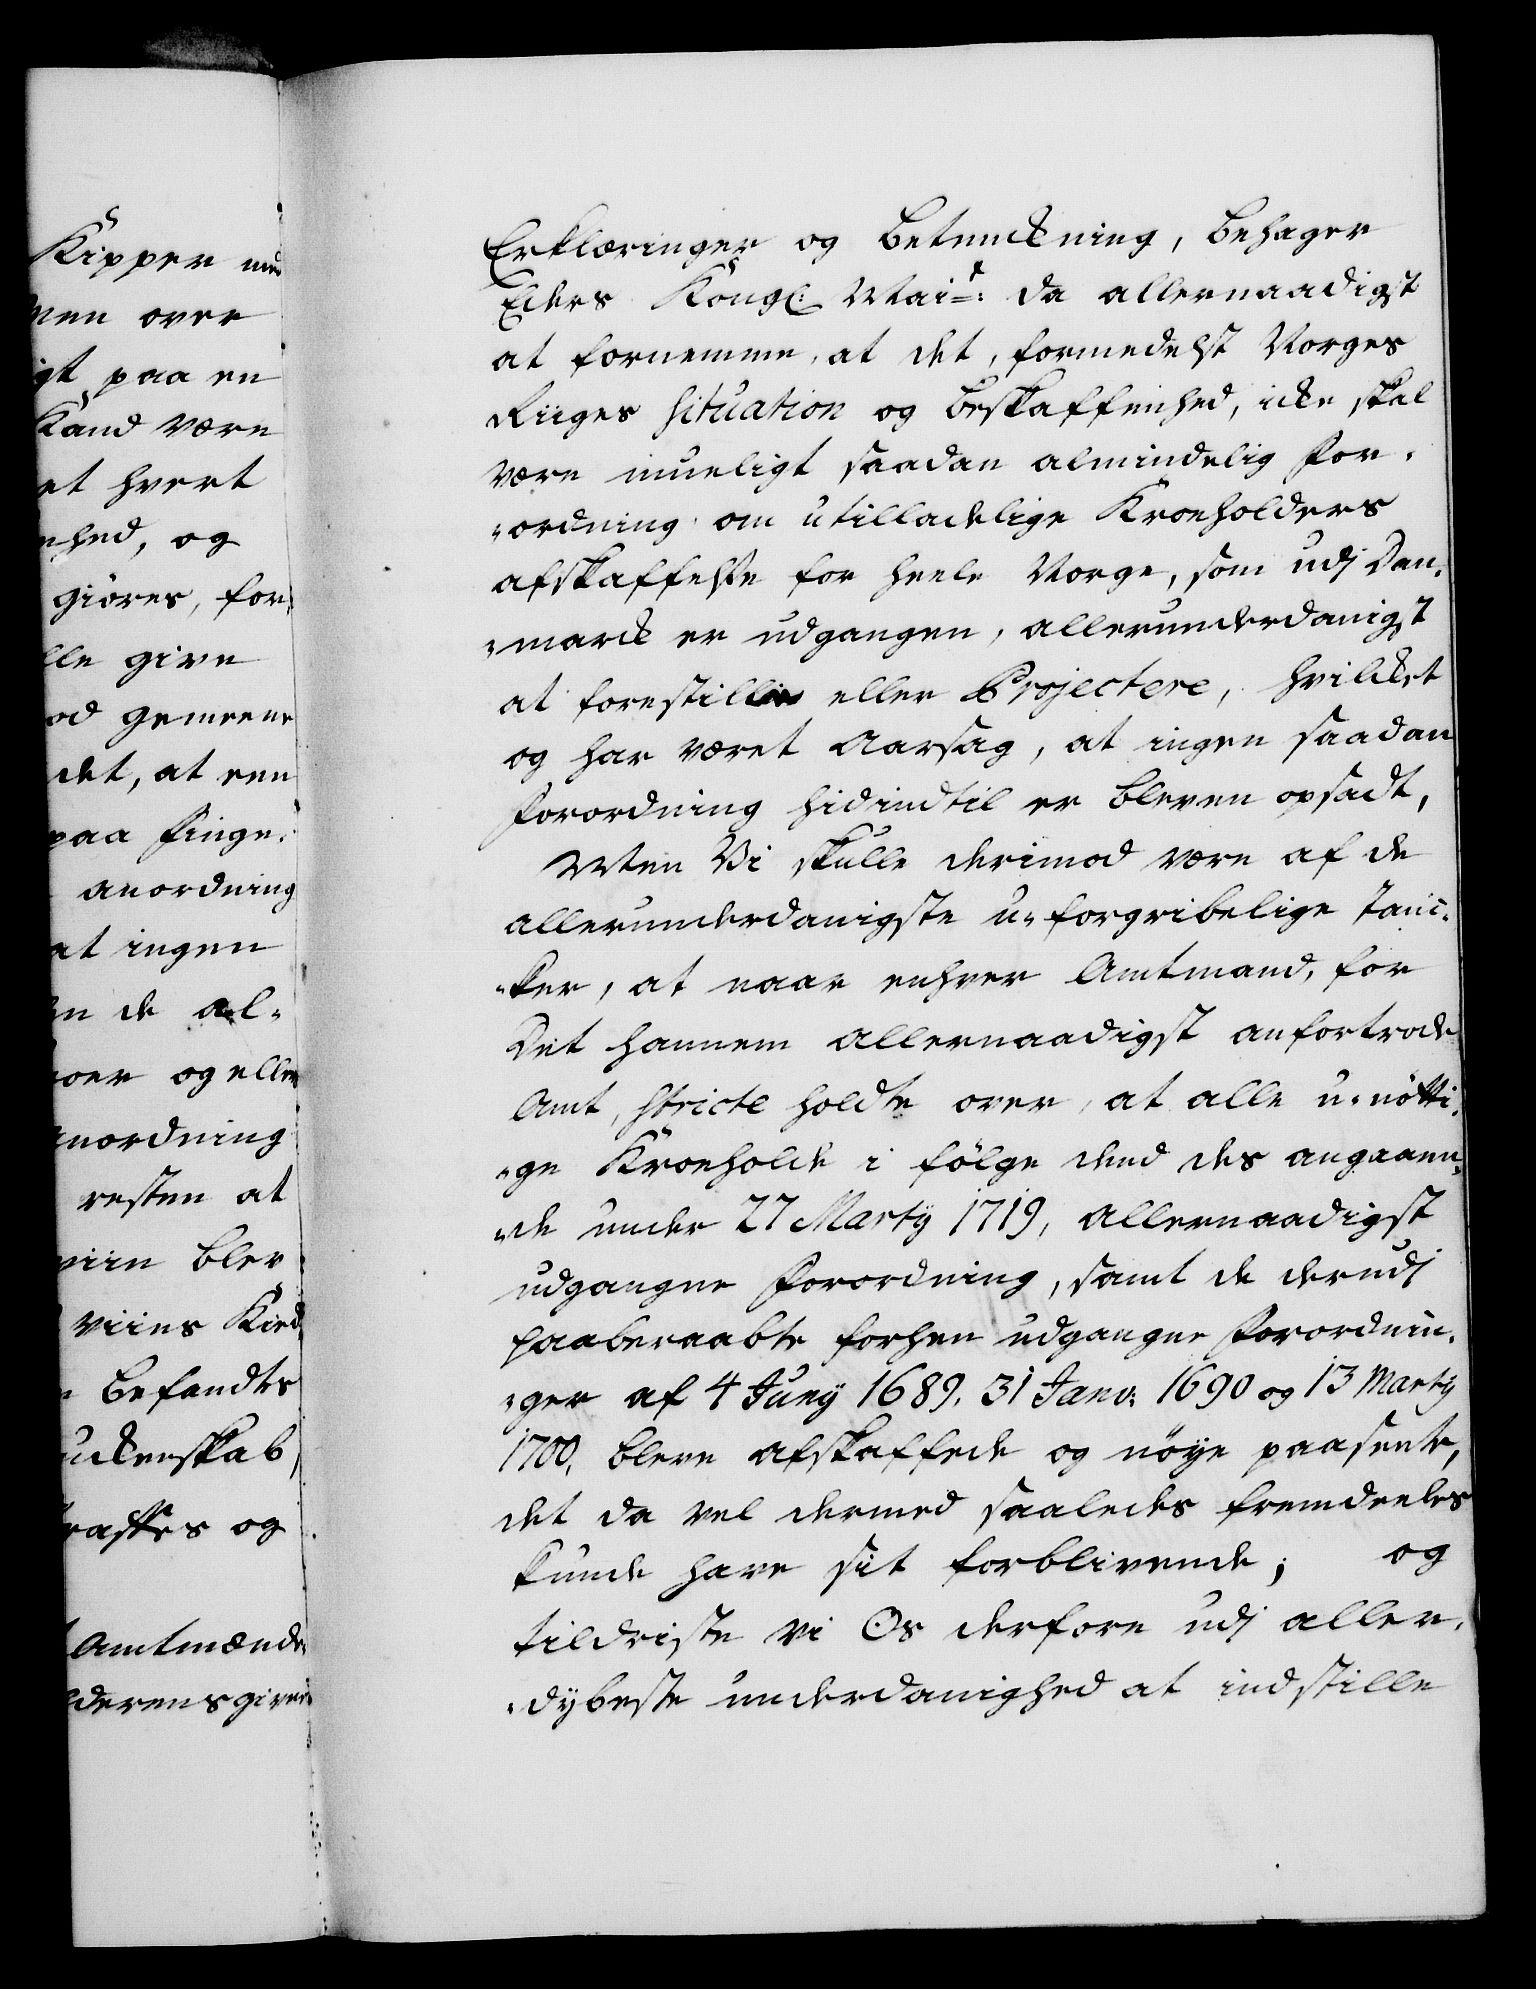 Kipper
nen over
gt paa en
Kand være
et hvert
nhed, og
giöres, for-
lle give
od gemeene
det, at een
paa Finge-
anordning
at ingen
en de al-
oer og eller
nordning
resten at
viin blev
viins Kied
befandtes
uckenskab,
raffes og
Amtmænde
lderens given
Erklæringer og Betenckning, behager
Eders Kongl: Mai:t da allernaadigst
at fornemme, at det, formedelst Norges
Riiges Situation og beskaffenhed, icke skal
være mueligt saadan almindelig For-
-ordning om utilladelige Kroeholders
afskaffelse for heele Norge, som udj Dan-
-marck er udgangen, allerunderdanigst
at forestille eller Projectere, hvilcket
og har været Aarsag, at ingen saadan
Forordning hidindtil er bleven opsadt,
Men Vi skulle derimod være af de
allerunderdanigste u-forgribelige Tanc-
-ker, at naar enhver Amtmand, for
Det hannem allernaadigst anfortrode
Amt, stricte holdte over, at alle u-nötti-
-ge Kroeholde i fölge dend des angaaen-
-de under 27 Martij 1719, allernaadigst
udgangne Forordning, samt de derudj
paaberaabte forhen udgangne Forordnin-
-ger af 4 Junij 1689. 31 Janv: 1690 og 13 Martij
1700, bleve afskaffede og nöye paaseete,
det da vel dermed saaledes fremdeeles
kunde have sit forblivende; og
tildriste vi Os derfore udj aller-
-dybeste underdanighed at indstille